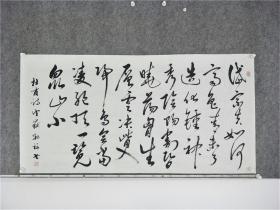 岱宗夫如何
齊魯青未了
造化鍾神
秀陰陽割昏
曉蕩胸生
層雲決眥入
歸鳥會當
凌絕頂一覽
衆山小
杜甫詩望嶽